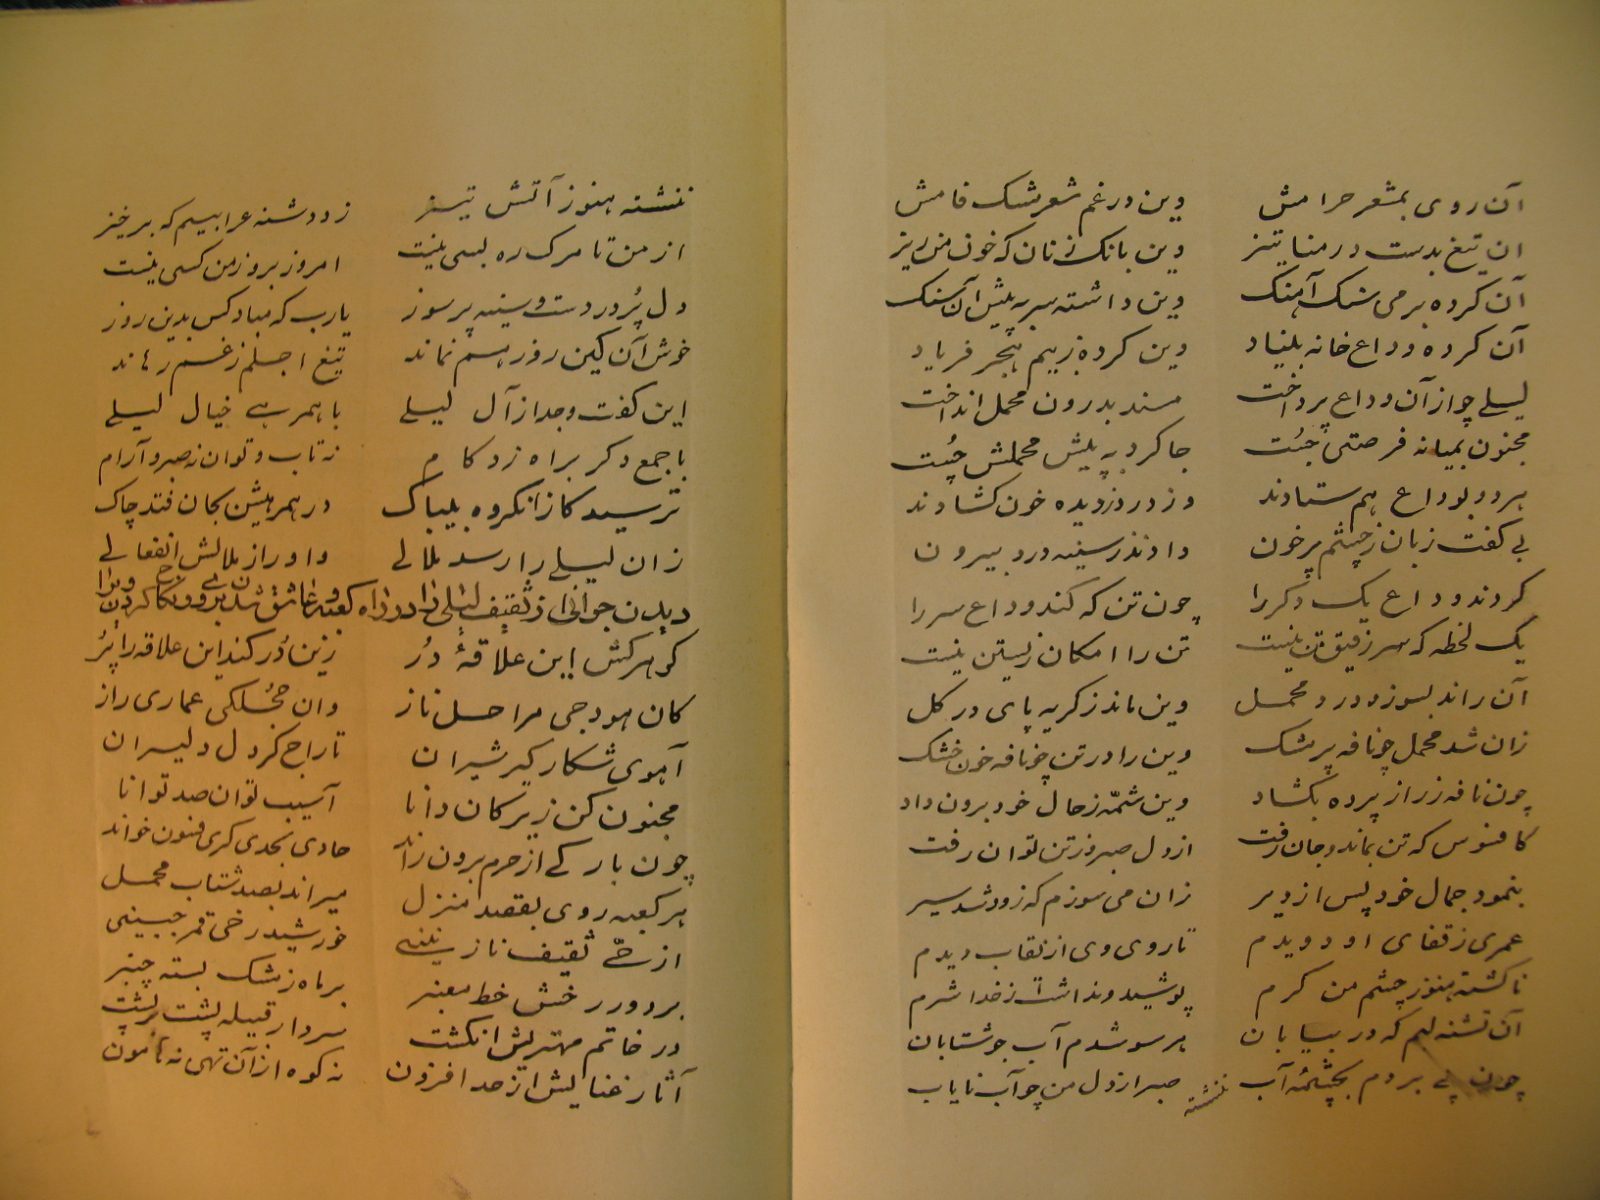 آن روی بمشعر حرامش وین در غم شعر مشک فامش
ان تیغ بدست در منا تیز وین بانک زنان که خون من ریز
آن کرده برمی سنک آهنک وین داشته سر به پیش آن سنک
آن کرده وداع خانه بنیاد وین کرده ز بیم هجر فریاد
لیلی چو از آن وداع پرداخت مسند بدرون محمل انداخت
مجنون بمیانه فرصتی جست جا کرد به پیش محملش چست
هر دو بوداع هم ستادند وز درد ز دیده خون کشادند
بی کفت زبان ز چشم پرخون دادند ز سینه درد بیرون
کردند وداع یک دکر را چون تن که کند وداع سر را
یک لخطه که سر رفیق تن نیست تن را امکان زیستن نیست
آن راند بسوز و درد محمل وین ماند ز کریه پای در کل
زان شد محمل چو نافه پر مشک وین را در تن چو نافه خون خشک
چون نافه ز راز پرده بکشاد وین شمّه ز حال خود برون داد
کافسوس که تن بماند و جان رفت از دل صبر و ز تن توان رفت
بنمود جمال خود پس از دیر زان می سوزم که زود شد سیر
عمری ز قفای او دویدم تا روی وی از نقاب دیدم
ناکشته هنوز چشم من کرم پوشید و نداشت از خدا شرم
آن تشنه لبم که در بیابان هر سو شدم آب جو شتابان
چون پی بردم بچشمهٔ آب صبر از دل من چو آب نایاب
ننشته
ننشته هنوز آتش تیز زد دشنه عرابییم که برخیز
از من تا مرک ره بسی نیست امروز بروز من کسی نیست
دل پُر درد ست و سینه پر سوز یارب که مباد کس بدین روز
خوش آن کین روز هم نماند تیغ اجلم ز غم رهاند
این کفت و جدا ز آل لیلی با همرهی خیال لیلی
با جمع دکر براه زد کام نه تاب و توان نه صبر و آرام
ترسید کز آن کروه بیباک در همرهیش بجان فتد چاک
زان لیلی را رسد ملالی و او را ز ملالش انفعالی
دیدن جوانی از ثقیف لیلی را در راه کعبه و عاشق شدن بروی و نکاح کردن ویرا
کوهرکش این علاقهٔ دُر زین دُر کند این علاقه را پُر
کان هودجی مراحل ناز وان حجلکی عماری راز
آهوی شکار کیر شیران تاراج کر دل دلیران
مجنون کن زیرکان دانا آسیب توان صد توانا
چون بارکی از حرم برون راند حادی بحدی کری فسون خواند
هر کعبه روی بقصد منزل میراند بصد شتاب محمل
از حیّ ثقیف نازنینی خورشید رخی قمر جبینی
بر دور رخش خط معنبر بر ماه ز مشک بسته چنبر
در خاتم مهتریش انکشت سردار قبیله پشت بر پشت
آثار غنایش از حد افزون نه کوه از آن تهی نه هامون